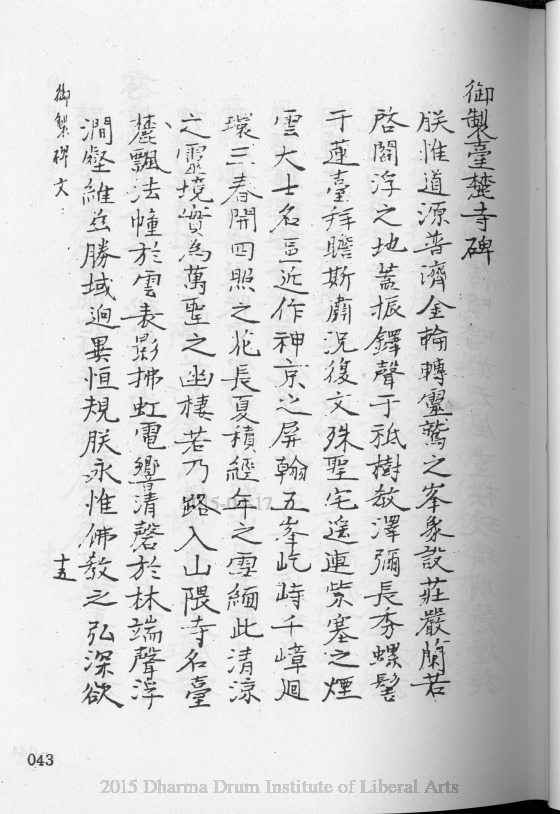 御製臺麓寺碑
朕惟道源普濟金輪轉靈鷲之峯象設莊嚴蘭若
啓閻浮之地蓋振鐸聲于祇樹敎澤彌長秀螺髻
于蓮臺拜瞻斯肅況復文殊聖宅遙連紫塞之煙
雲大士名區近作神京之屏翰五峯屹峙千嶂迴
環三春開四照之花長夏積經年之雪緬此清涼
之靈境實為萬聖之幽棲若乃路入山隈寺名臺
麓飄法幢於雲表影拂虹電響清磬於林端聲浮
澗壑維茲勝域迥異恒規朕永惟佛教之弘深欲
御製碑文
十五
043
2015 Dharma Drum Institute of Liberal Arts